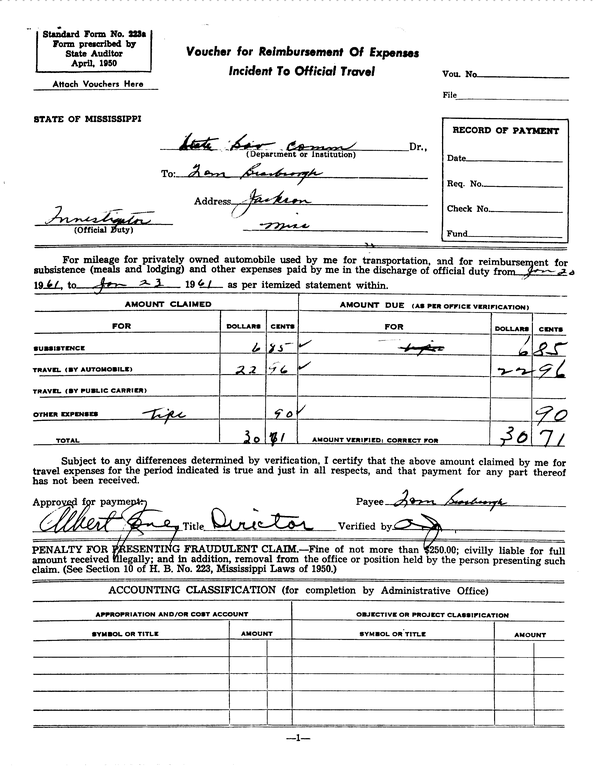 Standard Form No. 223a
Form prescribed by
State Auditor
April, 1950
Attach Vouchers Here
Voucher for Reimbursement Of Expenses
Incident To Official Travel
Vou. No.
File
STATE OF MISSISSIPPI
RECORD OF PAYMENT
Date
Req. No.
Check No.
Fund
State Sov Comm Dr.,
(Department or Institution)
To: Tom Scarbrough
Address Jackson
Miss
Investigator
(Official Duty)
For mileage for privately owned automobile used by me for transportation, and for reimbursement for
subsistence (meals and lodging) and other expenses paid by me in the discharge of official duty from Jan
1961, to Jan 23 1961 as per itemized statement within.
AMOUNT CLAIMED AMOUNT DUE (AS PER OFFICE VERIFICATION)
FOR DOLLARS CENTS FOR DOLLARS CENTS
SUBSISTENCE 6 85 ✓ 6 85
TRAVEL (BY AUTOMOBILE) 22 96 ✓ 22 96
TRAVEL (BY PUBLIC CARRIER)
OTHER EXPENSES Tips 90 ✓ 90
TOTAL 30 71 AMOUNT VERIFIED; CORRECT FOR 30 71
Subject to any differences determined by verification, I certify that the above amount claimed by me for
travel expenses for the period indicated is true and just in all respects, and that payment for any part thereof
has not been received.
Approved for payment: Payee Tom Scarbrough
Albert Jones Title Director Verified by
PENALTY FOR PRESENTING FRAUDULENT CLAIM.—Fine of not more than $250.00; civilly liable for full
amount received illegally; and in addition, removal from the office or position held by the person presenting such
claim. (See Section 10 of H. B. No. 223, Mississippi Laws of 1950.)
ACCOUNTING CLASSIFICATION (for completion by Administrative Office)
APPROPRIATION AND/OR COST ACCOUNT OBJECTIVE OR PROJECT CLASSIFICATION
SYMBOL OR TITLE AMOUNT SYMBOL OR TITLE AMOUNT
—1—